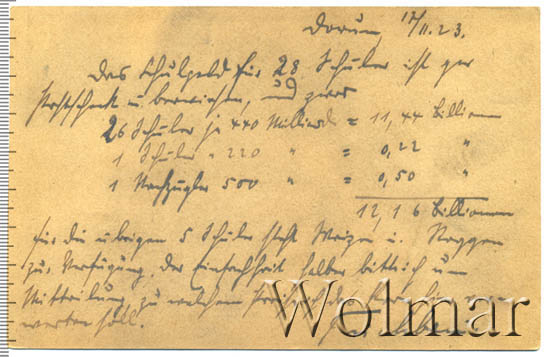 Dorum 17/11.23.
Das Schulgeld für 28 Schüler ist per
Postscheck überwiesen, und zwar
26 Schüler je 440 Milliard = 11,44 Billionen
1 Schüler " 220 " = 0,22 "
1 Nachzügler 500 " = 0,50 "
12,16 Billionen
Für die übrigen 5 Schüler steht Weizen u. Roggen
zur Verfügung, der Einfachheit halber bitte ich um
Mitteilung, zu welchem
werden soll.
Wolmar